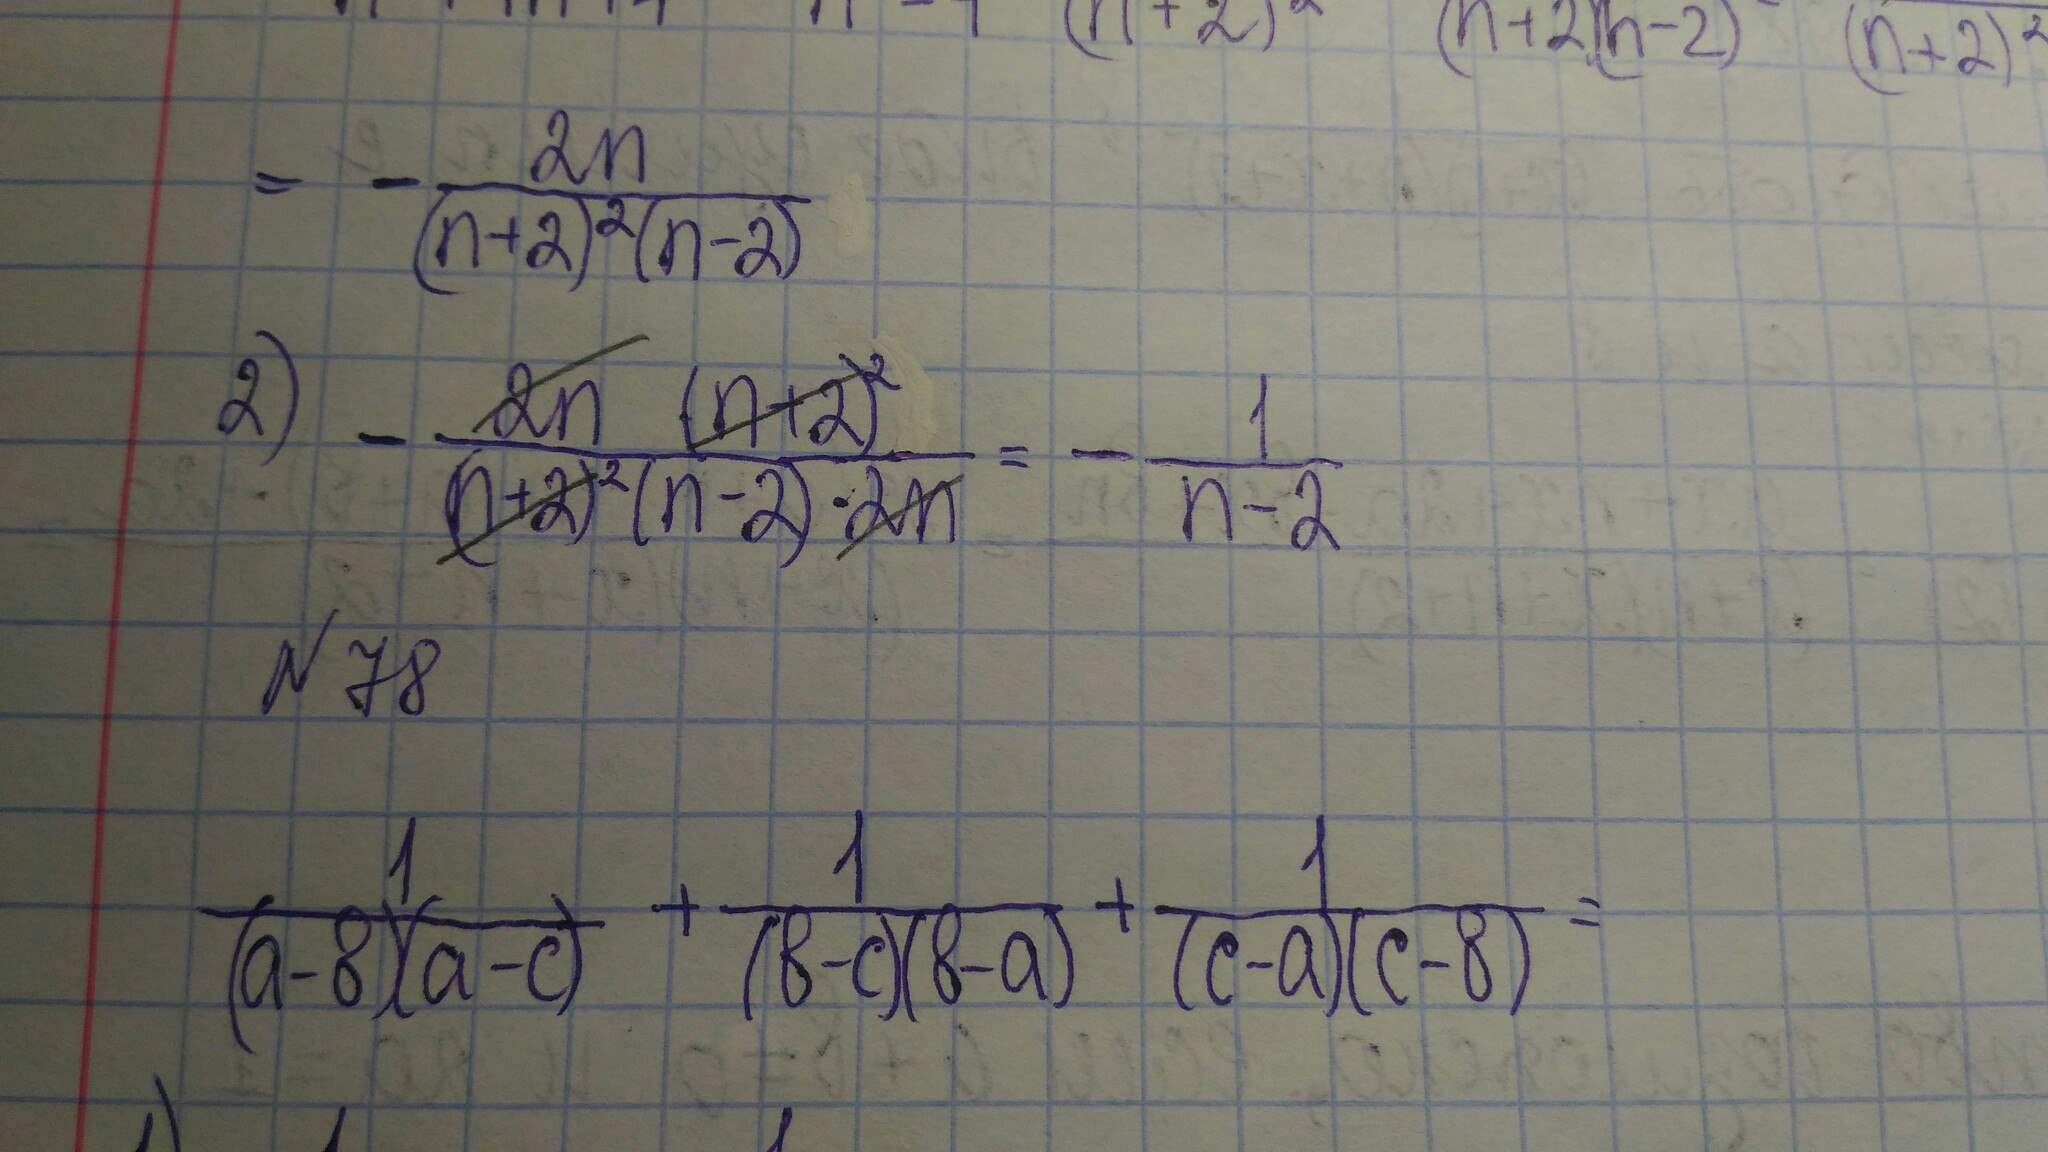 (n+2)² (n+2)(n-2) (n+2)²
= - 2n / (n+2)²(n-2)
2) - 2n (n+2)² / (n+2)²(n-2)·2n = - 1 / n-2
№78
1 / (a-в)(a-c) + 1 / (в-c)(в-a) + 1 / (c-a)(c-в) =